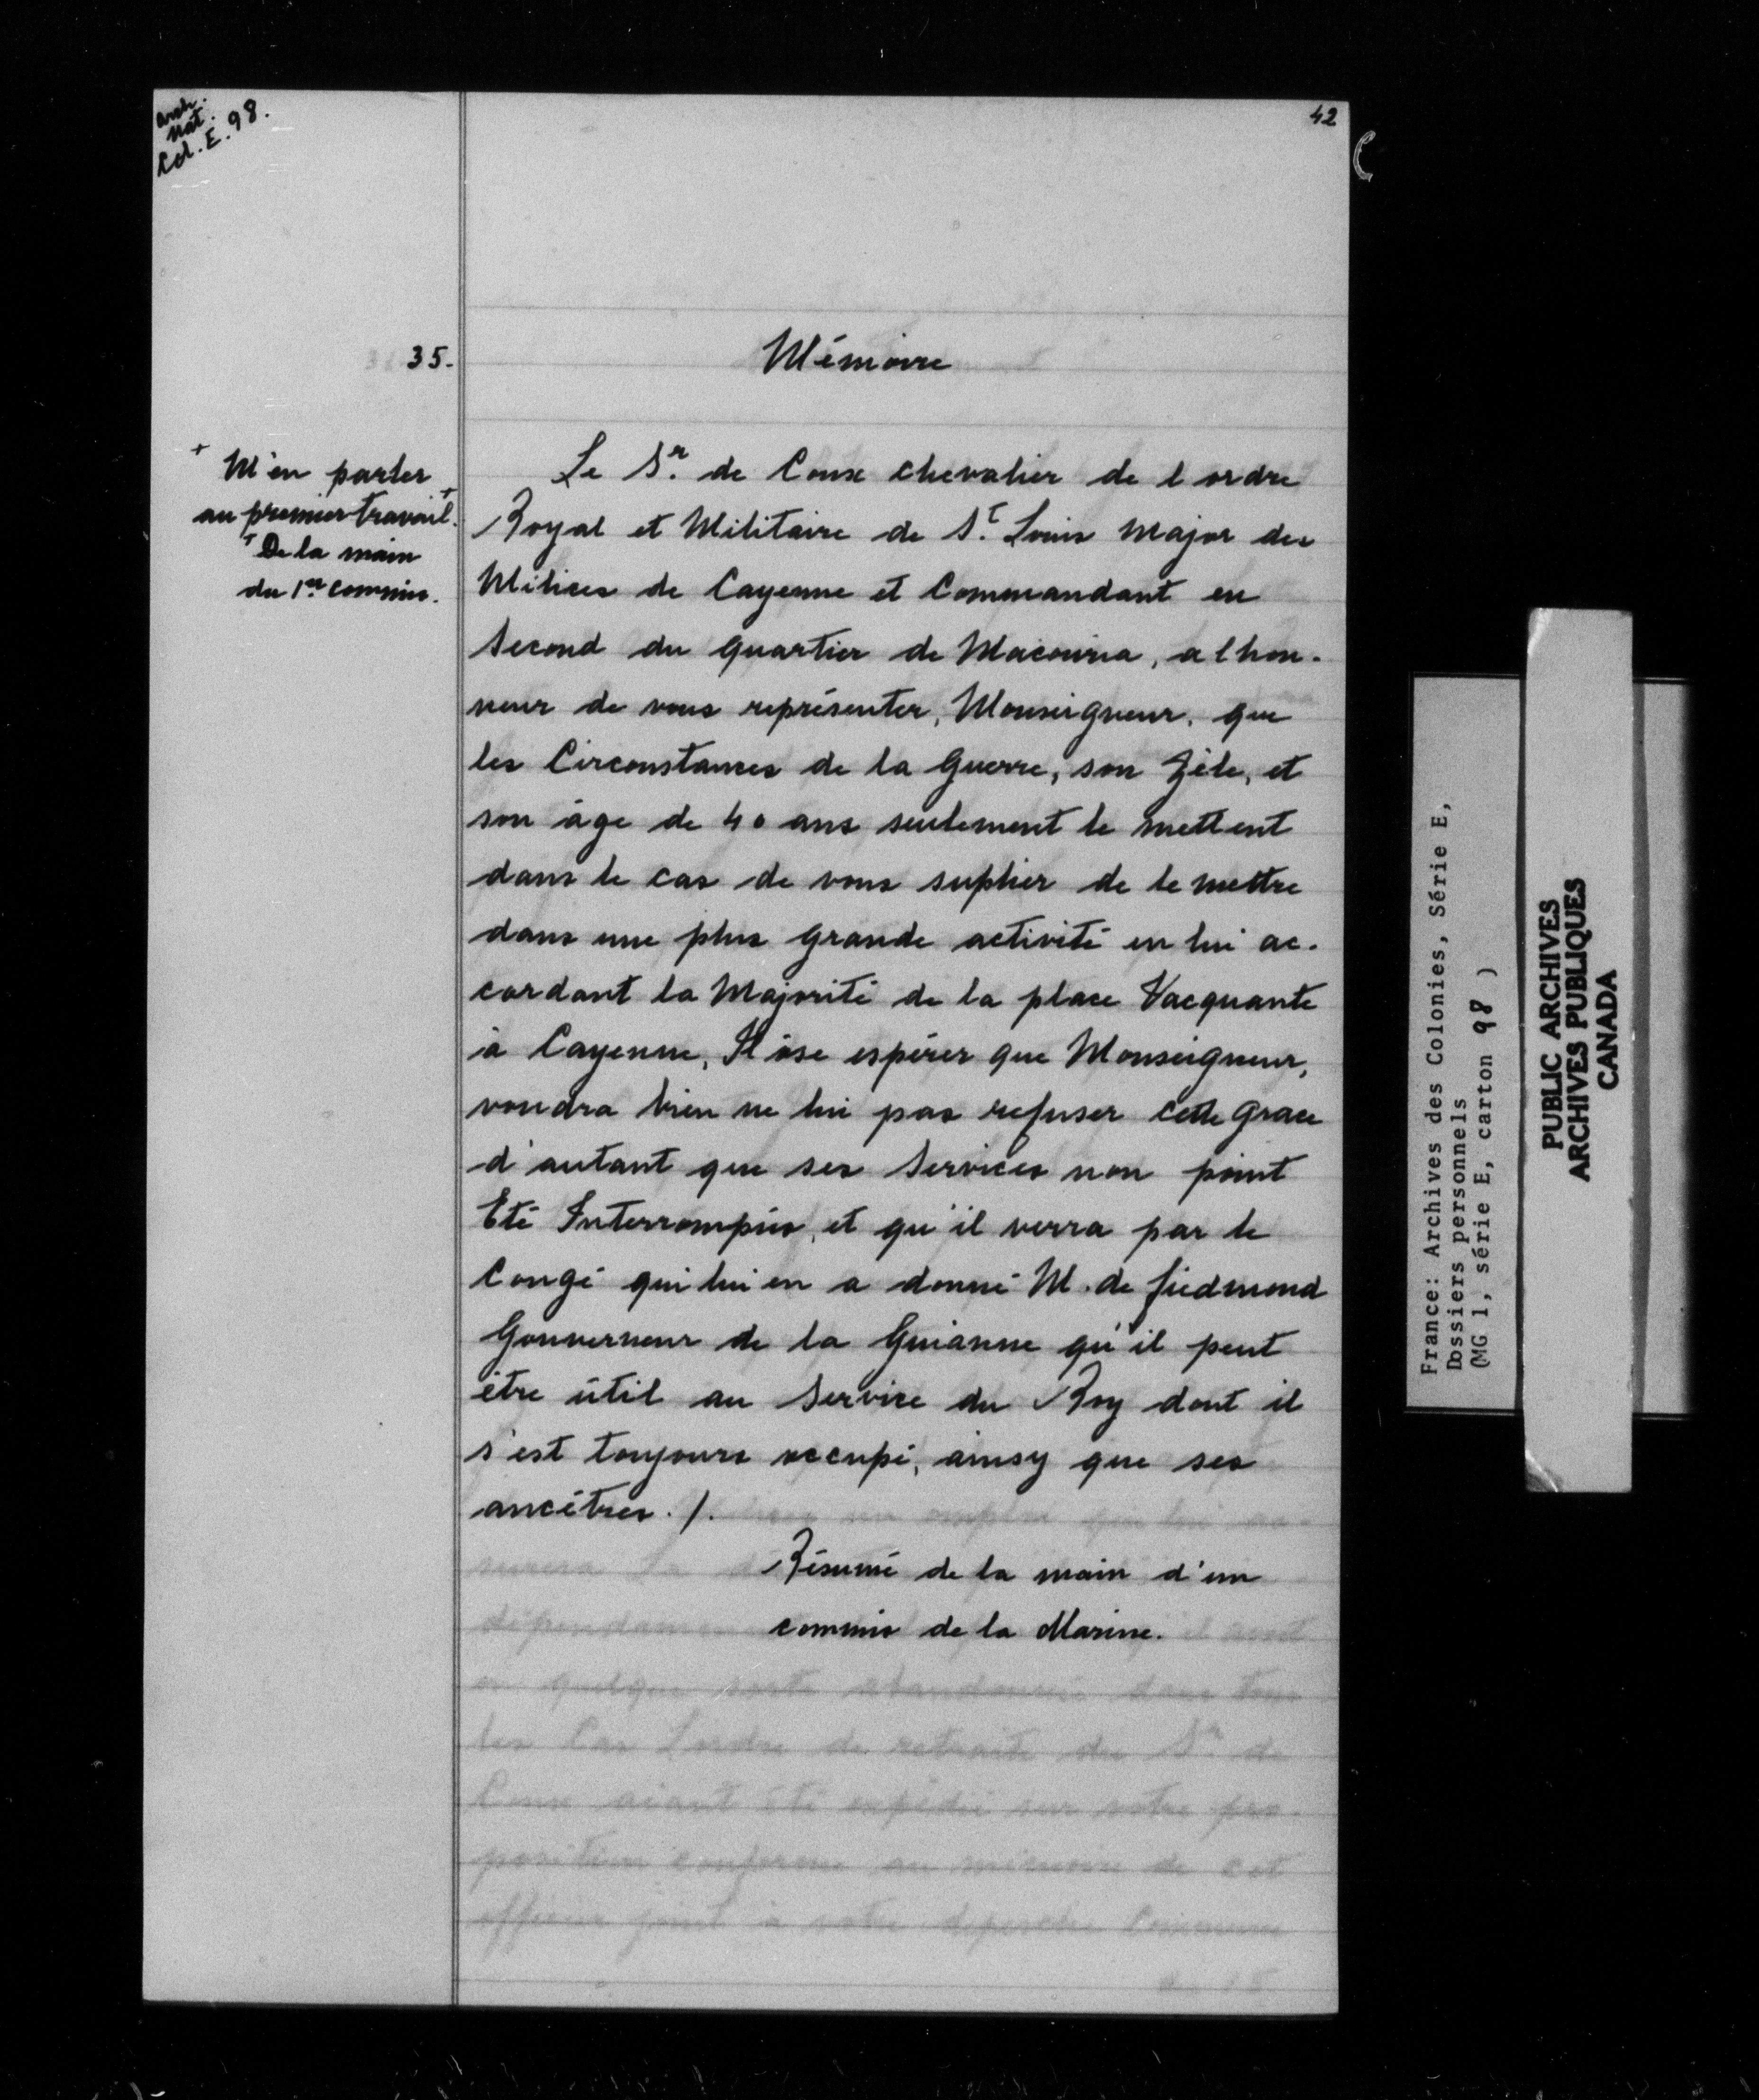 Arch.
Nat.
Col. E. 98.
42
35.
Mémoire
+ M'en parler
au premier travail. +
+ De la main
du 1er commis.
Le Sr. de Coux chevalier de l ordre
Royal et Militaire de St. Louis Major des
Milices de Cayenne et Commandant en
Second du Quartier de Macouria, a lhon-
neur de vous représenter, Monseigneur, que
les Circonstances de la Guerre, son Zéle, et
son âge de 40 ans seulement le mettent
dans le cas de vous suplier de le mettre
dans une plus grande activité en lui ac-
cordant la Majorité de la place Vacquante
à Cayenne, Il ose espérer que Monseigneur,
voudra bien ne lui pas refuser cette grace
d'autant que ses Services non point
Eté Interrompüs, et qu'il verra par le
Congé qui lui en a donné M. de fiedmond
Gouverneur de la Guianne qu'il peut
être ütil au Service du Roy dont il
s'est toujours occupé, ainsy que ses
ancêtres. /.
Résumé de la main d'un
commis de la Marine.
en quelque sorte
les Cas Lordre de retraite du Sr de
Coux aiant été expédié sur votre pro-
position conforme au mémoire de cet
officier joint à votre depeche Commune
France: Archives des Colonies, Série E,
Dossiers personnels
(MG 1, série E, carton 98 )
PUBLIC ARCHIVES
ARCHIVES PUBLIQUES
CANADA